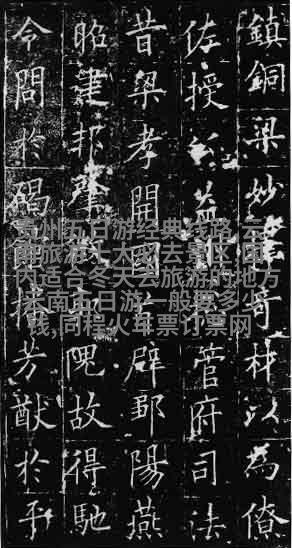 鎮銅梁妙奇材以為僚
佐授益管府司法
昔梁孝開國首辟鄒陽燕
昭建邦肇隗故得馳
令問於碣播芳猷於平
州五日游经典线路,云
南旅游十大必去景区,国
内适合冬天去旅游的地方
南五日游一般要多少
钱,同程火车票订票网